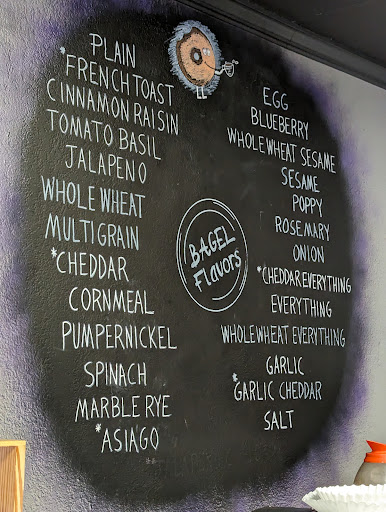 PLAIN
*FRENCH TOAST
CINNAMON RAISIN
TOMATO BASIL
JALAPENO
WHOLE WHEAT
MULTIGRAIN
*CHEDDAR
CORNMEAL
PUMPERNICKEL
SPINACH
MARBLE RYE
*ASIAGO
BAGEL
Flavors
EGG
BLUEBERRY
WHOLEWHEAT SESAME
SESAME
POPPY
ROSEMARY
ONION
*CHEDDAR EVERYTHING
EVERYTHING
WHOLEWHEAT EVERYTHING
GARLIC
*GARLIC CHEDDAR
SALT